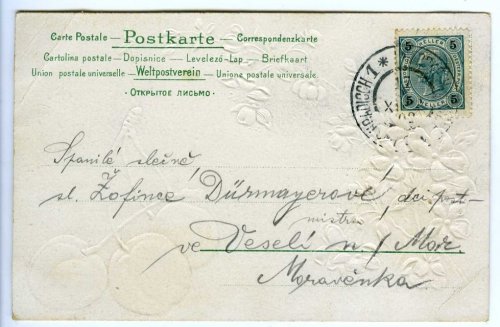 Carte Postale — Postkarte — Correspondenzkarte
Cartolina postale – Dopisnice – Levelező-Lap – Briefkaart
Union postale universelle – Weltpostverein – Unione postale universale.
- ОТКРЫТОЕ ПИСЬМО -
5 5
HELLER HELLER
5 5
HRADISCH 1 *
Spanilé slečně,
sl. Žofince Dürmayerové, dci post-
mistra
ve Veselí n/ Mor.
Moravěnka